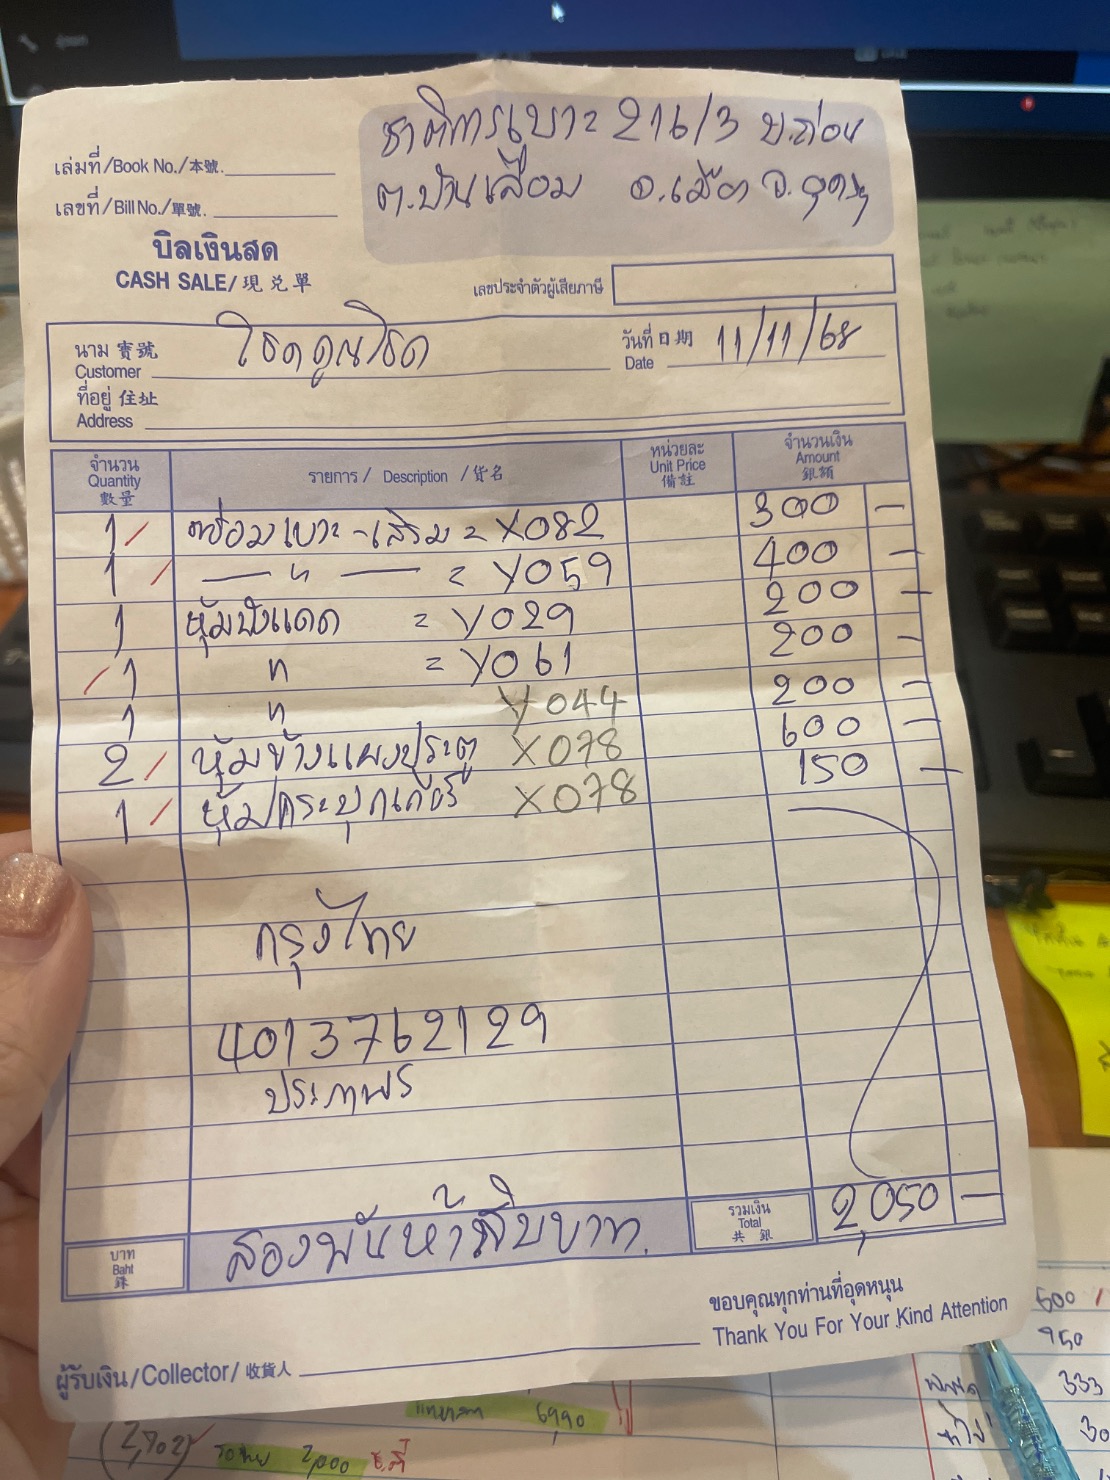 ชาติการเบาะ 216/3 บ.ถ่อน
ต.บ้านเลื่อม อ.เมือง จ.อุดร
เล่มที่/Book No./本號.
เลขที่/Bill No./單號.
บิลเงินสด
CASH SALE/現兌單
เลขประจำตัวผู้เสียภาษี
นาม 寶號 โชคคูณโชค วันที่ 日期 11/11/68
Customer Date
ที่อยู่ 住址
Address
จำนวน รายการ / Description / 貨名 หน่วยละ จำนวนเงิน
Quantity Unit Price Amount
數量 備註 銀額
1 / ซ่อมเบาะ-เสริม = X082 300 –
1 / — " — = Y059 400 –
1 หุ้มบังแดด = Y029 200 –
/ 1 " = Y061 200 –
1 " Y044 200 –
2 / หุ้มข้างแผงประตู X078 600 –
1 / หุ้มกระปุกเกียร์ X078 150 –
กรุงไทย
4013762129
ประภาพร
บาท สองพันห้าสิบบาท. รวมเงิน 2,050 –
Baht Total
銖 共 銀
ขอบคุณทุกท่านที่อุดหนุน
Thank You For Your Kind Attention
ผู้รับเงิน/Collector/收貨人
500 /
950
333
30
6,990
2,902
2,000